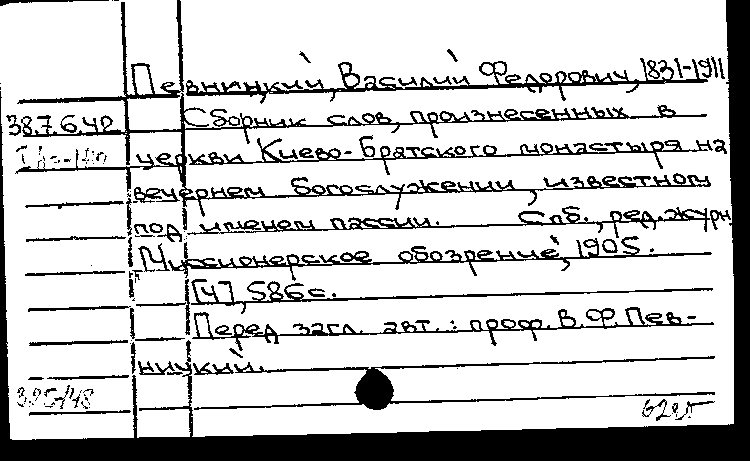 Певницкий, Василий Федорович, 1831-1911
38.7.6.42 Сборник слов, произнесенных в
церкви Киево-Братского монастыря на
вечернем богослужении, известном
под именем пассии. Спб., ред. журн.
"Миссионерское обозрение", 1905.
[4], 586 с.
Перед загл. авт.: проф. В. Ф. Пев-
ницкий.
395/48